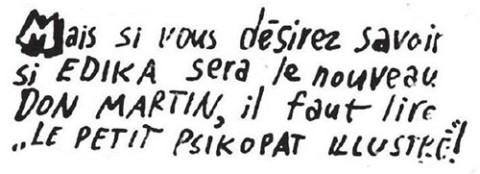 Mais si vous désirez savoir
si EDIKA sera le nouveau
DON MARTIN, il faut lire
„LE PETIT PSIKOPAT ILLUSTRÉ"!